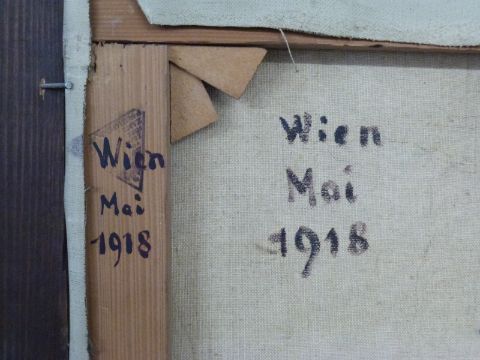 Wien
Mai
1918
Wien
Mai
1918